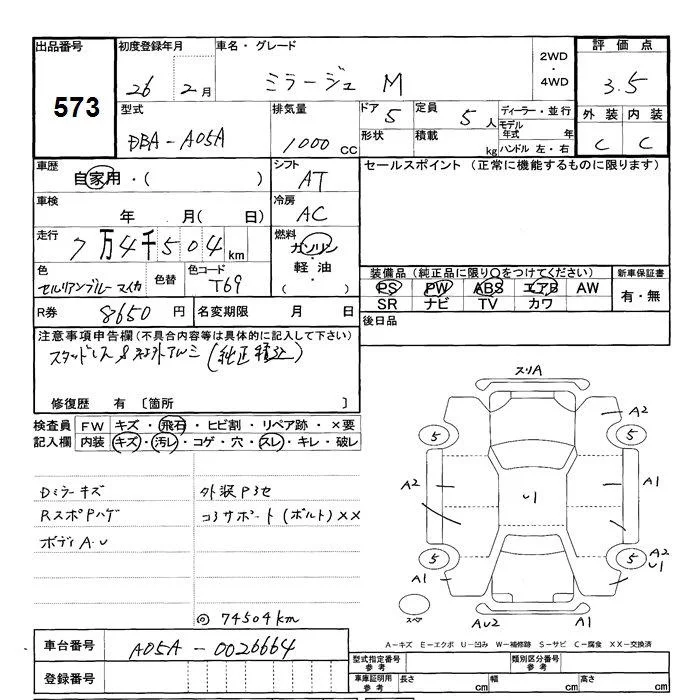 出品番号 初度登録年月 車名・グレード 2WD・4WD 評価点
573 26 2月 ミラージュ M 3.5
型式 排気量 ドア 5 定員 5人 ディーラー・並行 外装 内装
DBA-A05A 1000 CC 形状 積載 kg モデル年式 年 C C
ハンドル 左・右
車歴 シフト セールスポイント (正常に機能するものに限ります)
自家用・( ) AT
車検 冷房
年 月( 日) AC
走行 燃料
7万4千504km ガソリン・軽油・( )
色 色替 色コード 装備品 (純正品に限り○をつけてください) 新車保証書
セルリアンブルーマイカ T69 PS PW ABS エアB AW 有・無
SR ナビ TV カワ
R券 8650円 名変期限 月 日 後日品
注意事項申告欄(不具合内容等は具体的に記入して下さい)
スタッドレス & 社外アルミ (純正積込)
修復歴 有 〔箇所 〕
検査員 FW キズ・飛石・ヒビ割・リペア跡・×要
記入欄 内装 キズ・汚レ・コゲ・穴・スレ・キレ・破レ
Dミラーキズ 外装P3セ
RスポPハゲ コアサポート(ボルト)XX
ボディA・U
74504km
スリA
A2
5 5
A2 A1
U1
5 5 A2 U1
A1
スペア AU2 A1
A-キズ E-エクボ U-凹み W-補修跡 S-サビ C-腐食 XX-交換済
車台番号 A05A-0026664 型式指定番号 参考 類別区分番号 参考
登録番号 車庫証明用 参考 長さ cm 幅 cm 高さ cm